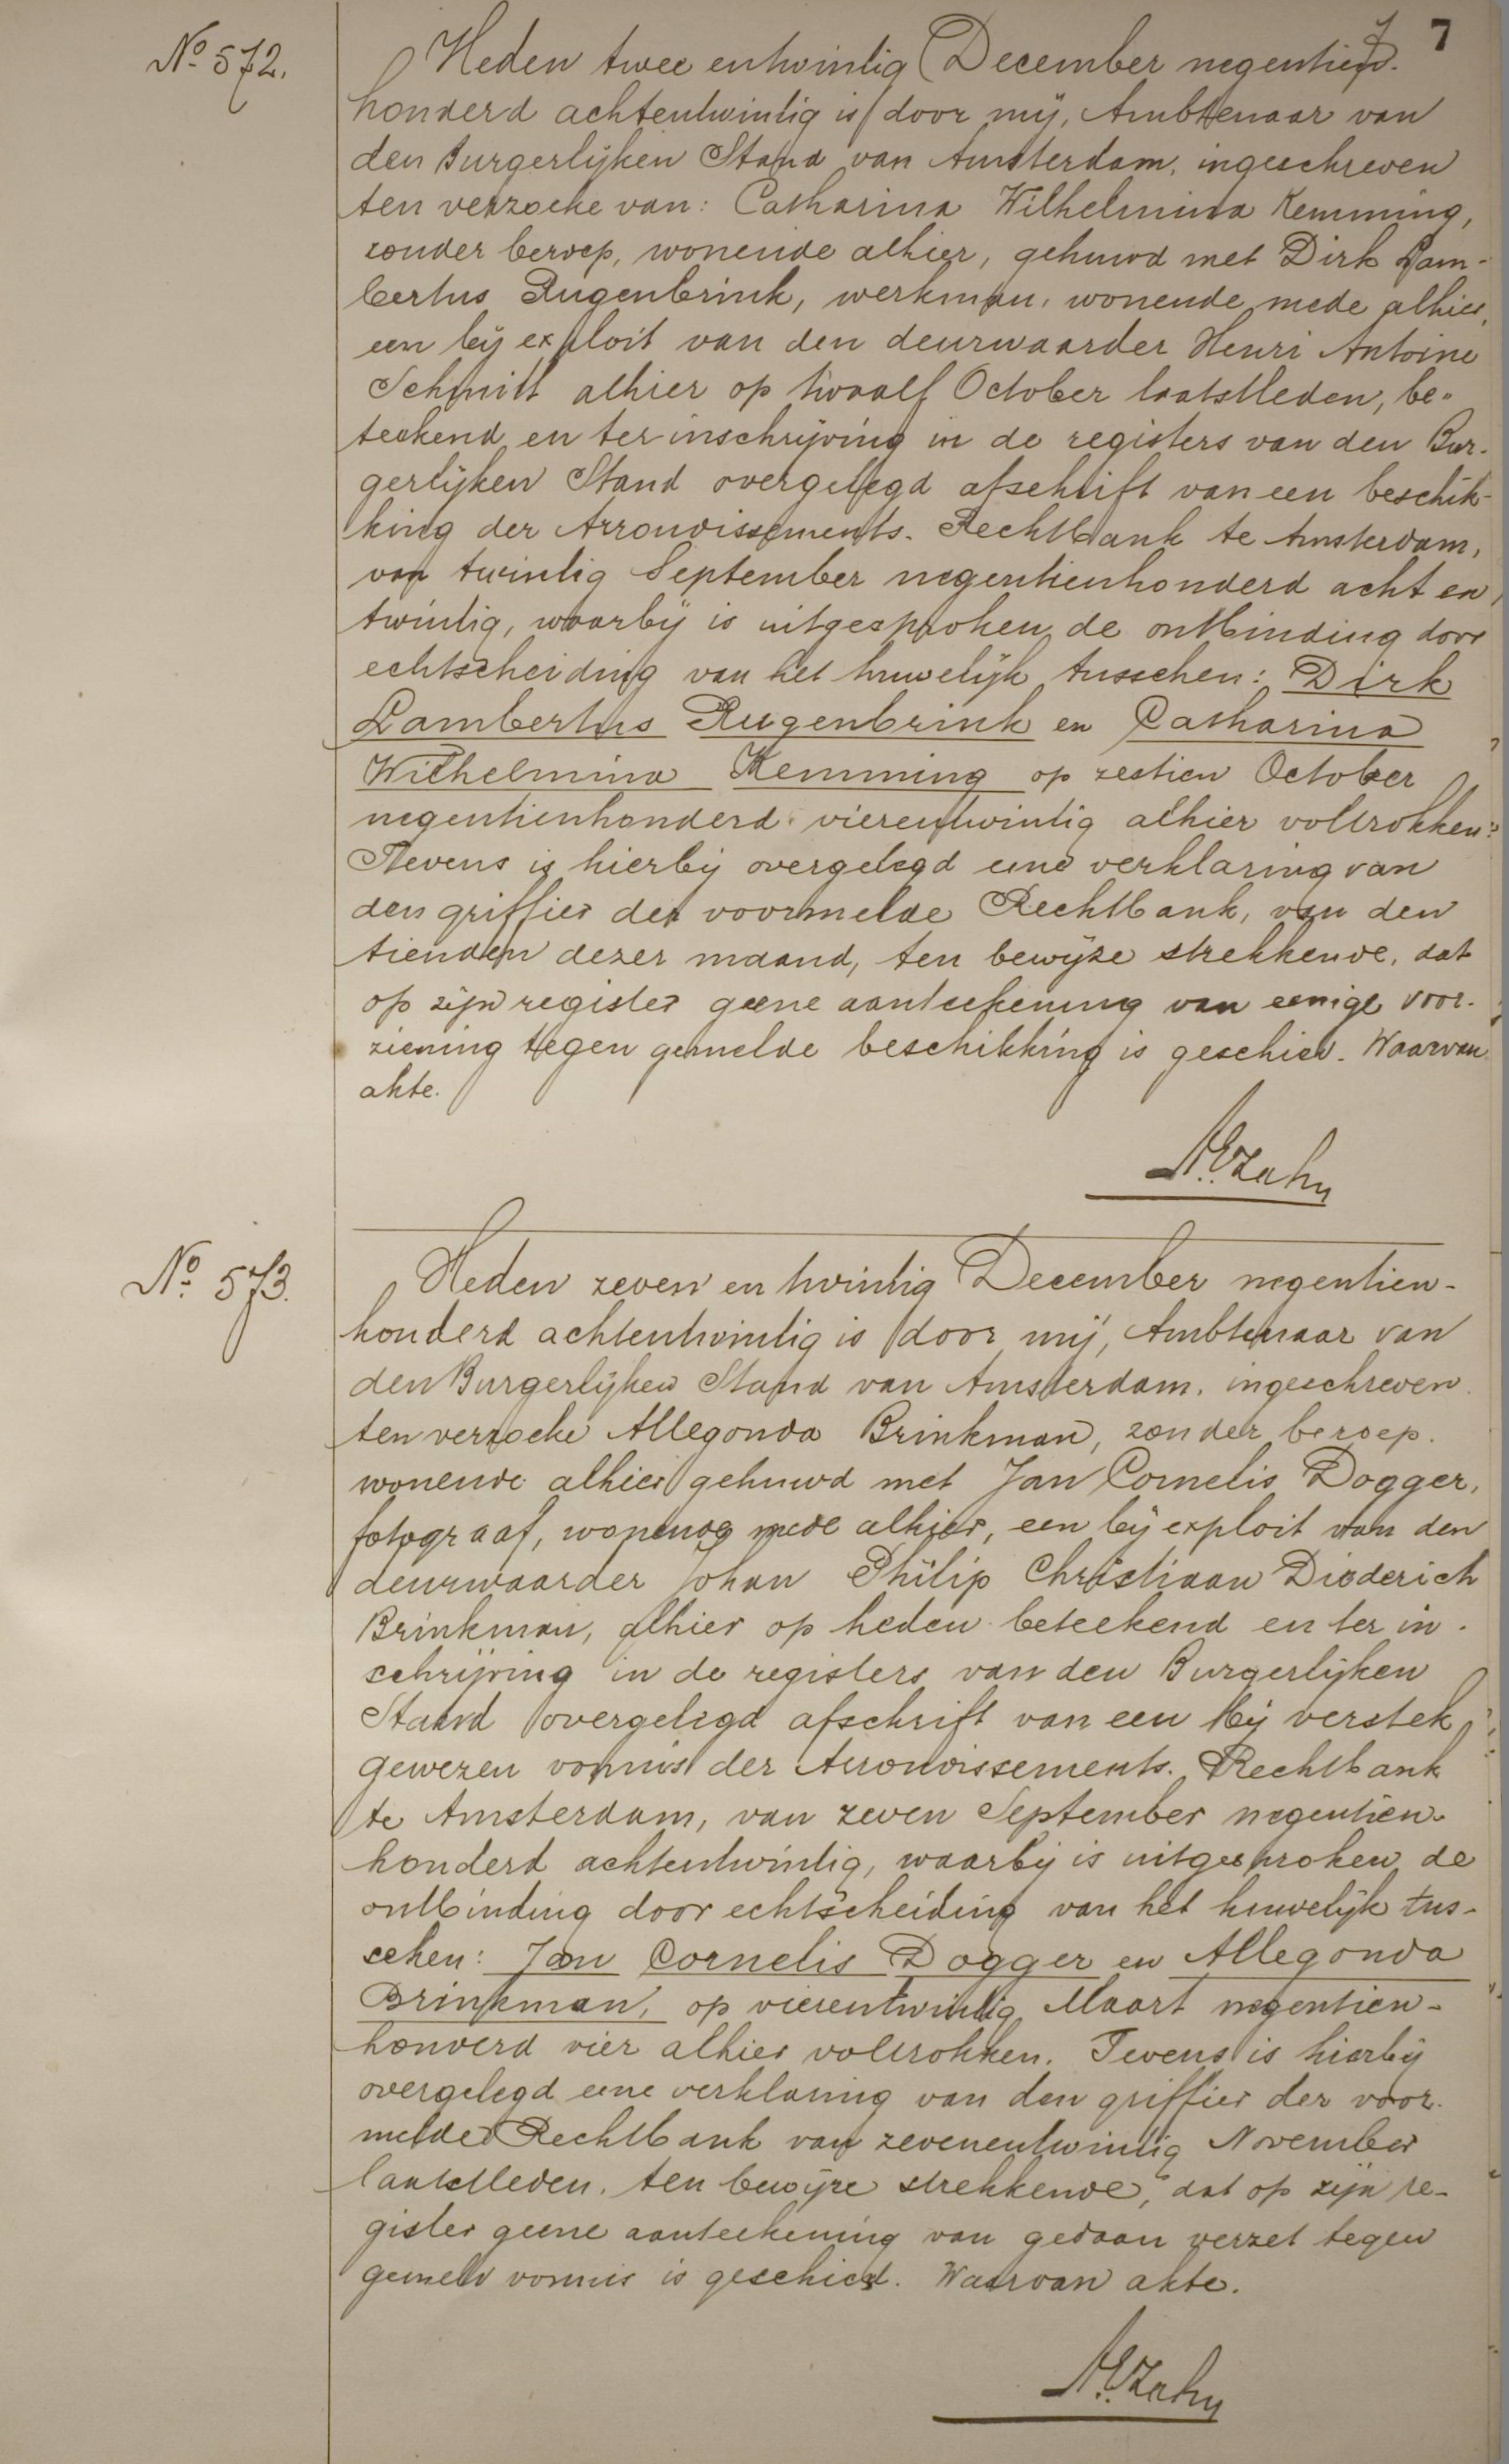 7
7
No. 572.
Heden twee en twintig December negentien-
honderd achtentwintig is door mij, Ambtenaar van
den Burgerlijken Stand van Amsterdam, ingeschreven
ten verzoeke van: Catharina Wilhelmina Kemming,
zonder beroep, wonende alhier, gehuwd met Dirk Lam-
bertus Rugenbrink, werkman, wonende mede alhier,
een bij exploit van den deurwaarder Henri Antoine
Schmitt alhier op twaalf October laatstleden, be-
teekend en ter inschrijving in de registers van den Bur-
gerlijken Stand overgelegd afschrift van een beschik-
king der Arrondissements-Rechtbank te Amsterdam,
van twintig September negentienhonderd acht en
twintig, waarbij is uitgesproken de ontbinding door
echtscheiding van het huwelijk tusschen: Dirk
Lambertus Rugenbrink en Catharina
Wilhelmina Kemming op zestien October
negentienhonderd vierentwintig alhier voltrokken.
Tevens is hierbij overgelegd eene verklaring van
den griffier der voormelde Rechtbank, van den
tienden dezer maand, ten bewijze strekkende, dat
op zijn register geene aanteekening van eenige voor-
ziening tegen gemelde beschikking is geschied. Waarvan
akte.
A.E. Zahn
No. 573.
Heden zeven en twintig December negentien-
honderd achtentwintig is door mij, Ambtenaar van
den Burgerlijken Stand van Amsterdam, ingeschreven
ten verzoeke Allegonda Brinkman, zonder beroep.
wonende alhier gehuwd met Jan Cornelis Dogger,
fotograaf, wonende mede alhier, een bij exploit van den
deurwaarder Johan Philip Christiaan Diederich
Brinkman, alhier op heden beteekend en ter in-
schrijving in de registers van den Burgerlijken
Stand overgelegd afschrift van een bij verstek
gewezen vonnis der Arrondissements-Rechtbank
te Amsterdam, van zeven September negentien-
honderd achtentwintig, waarbij is uitgesproken de
ontbinding door echtscheiding van het huwelijk tus-
schen: Jan Cornelis Dogger en Allegonda
Brinkman, op vierentwintig Maart negentien-
honderd vier alhier voltrokken. Tevens is hierbij
overgelegd eene verklaring van den griffier der voor-
melde Rechtbank van zevenentwintig November
laatstleden, ten bewijze strekkende, dat op zijn re-
gister geene aanteekening van gedaan verzet tegen
gemeld vonnis is geschied. Waarvan akte.
A.E. Zahn